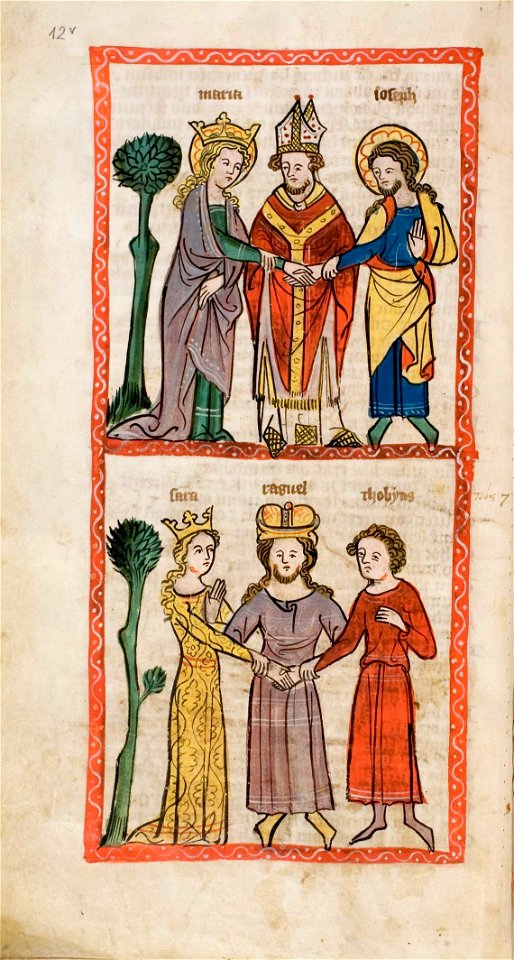 12v
maria
ioseph
sara
raguel
thobyas